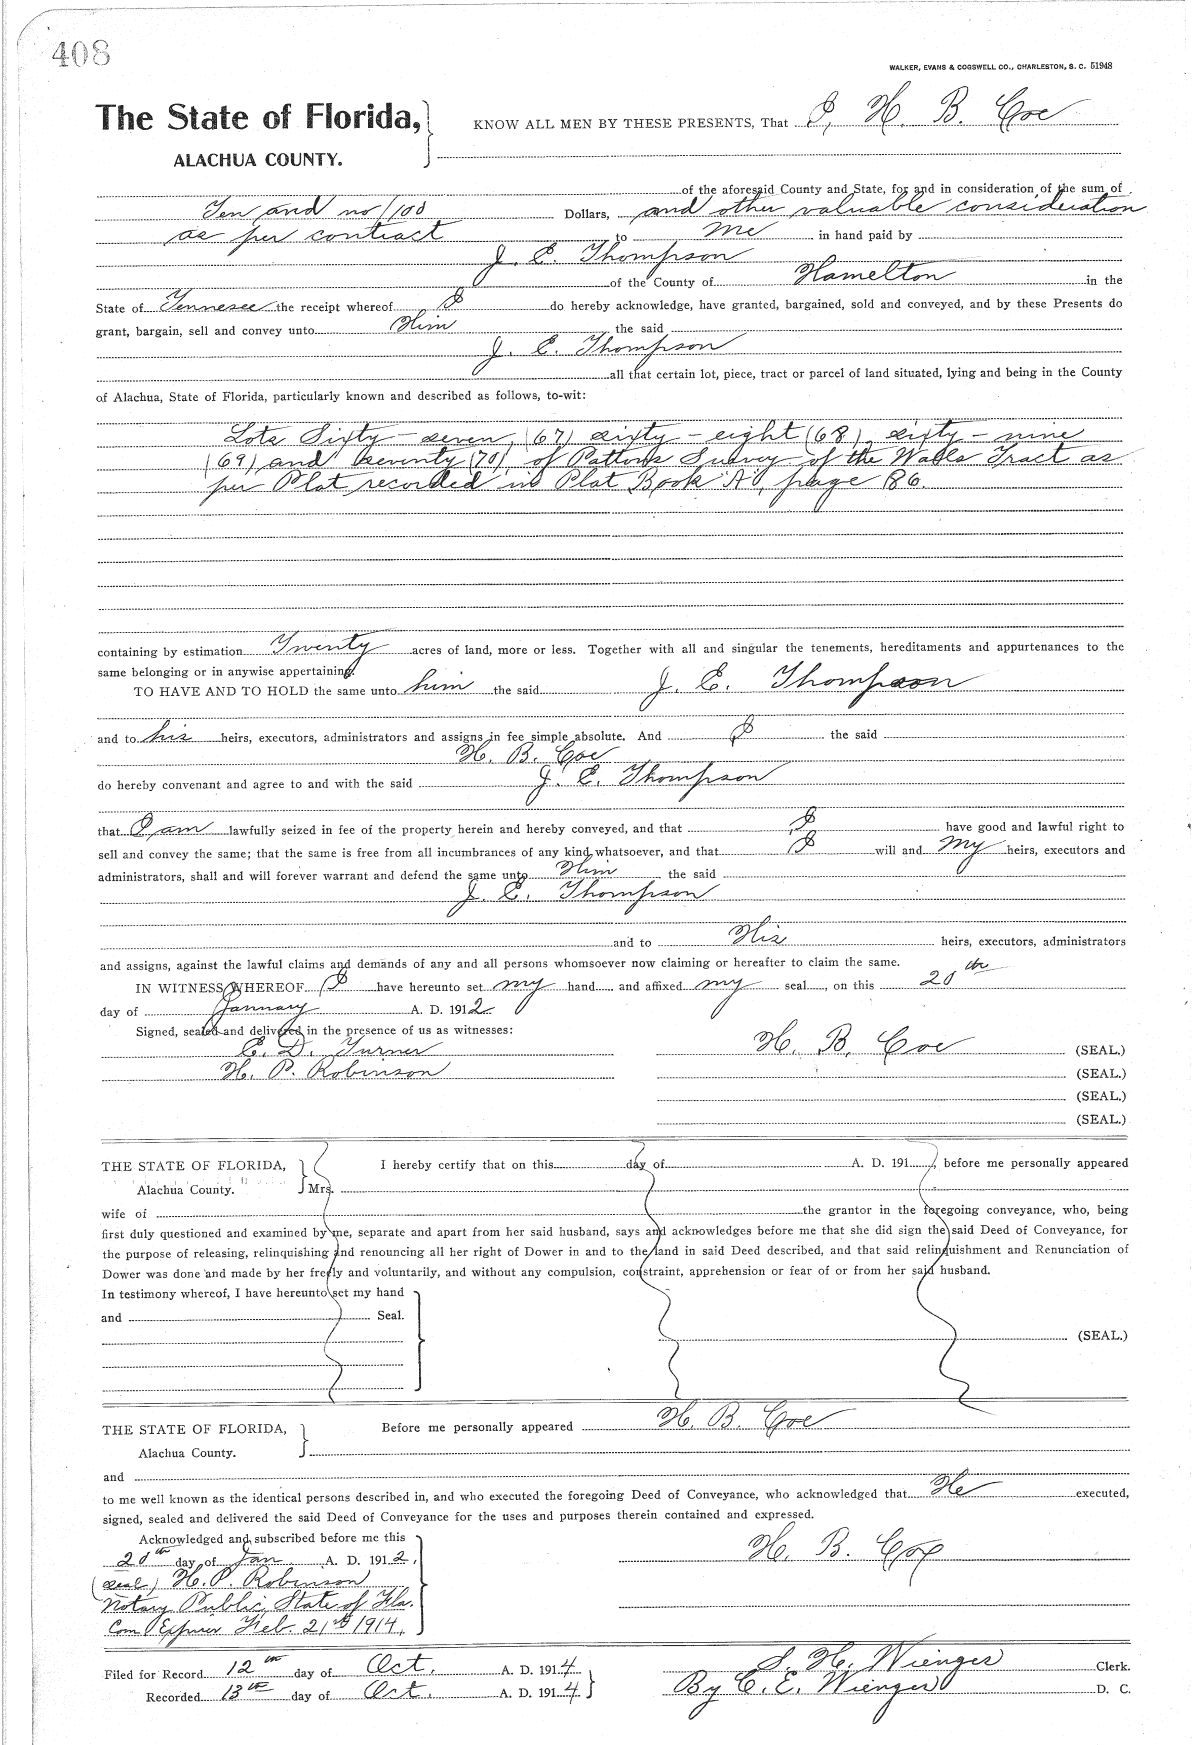 408
WALKER, EVANS & COGSWELL CO., CHARLESTON, S. C. 51948
The State of Florida,
ALACHUA COUNTY.
KNOW ALL MEN BY THESE PRESENTS, That I, H. B. Coe
of the aforesaid County and State, for and in consideration of the sum of
Ten and no/100 Dollars, and other valuable consideration
as per contract to me in hand paid by
J. E. Thompson
of the County of Hamelton in the
State of Tennesee the receipt whereof I do hereby acknowledge, have granted, bargained, sold and conveyed, and by these Presents do
grant, bargain, sell and convey unto Him the said
J. E. Thompson
all that certain lot, piece, tract or parcel of land situated, lying and being in the County
of Alachua, State of Florida, particularly known and described as follows, to-wit:
Lots Sixty-seven, (67) sixty-eight (68), sixty-nine
(69) and seventy (70), of Pattons Survey of the Walls Tract as
per Plat recorded in Plat Book "A", page 86.
containing by estimation Twenty acres of land, more or less. Together with all and singular the tenements, hereditaments and appurtenances to the
same belonging or in anywise appertaining.
TO HAVE AND TO HOLD the same unto him the said J. E. Thompson
and to his heirs, executors, administrators and assigns in fee simple absolute. And I the said
H. B. Coe
do hereby convenant and agree to and with the said J. E. Thompson
that I am lawfully seized in fee of the property herein and hereby conveyed, and that I have good and lawful right to
sell and convey the same; that the same is free from all incumbrances of any kind whatsoever, and that I will and my heirs, executors and
administrators, shall and will forever warrant and defend the same unto Him the said
J. E. Thompson
and to His heirs, executors, administrators
and assigns, against the lawful claims and demands of any and all persons whomsoever now claiming or hereafter to claim the same.
IN WITNESS WHEREOF I have hereunto set my hand and affixed my seal, on this 20th
day of January A. D. 1912
Signed, sealed and delivered in the presence of us as witnesses:
E. D. Turner
H. B. Coe (SEAL.)
H. P. Robinson
(SEAL.)
(SEAL.)
(SEAL.)
THE STATE OF FLORIDA,
Alachua County.
I hereby certify that on this day of A. D. 191 , before me personally appeared
Mrs.
wife of the grantor in the foregoing conveyance, who, being
first duly questioned and examined by me, separate and apart from her said husband, says and acknowledges before me that she did sign the said Deed of Conveyance, for
the purpose of releasing, relinquishing and renouncing all her right of Dower in and to the land in said Deed described, and that said relinquishment and Renunciation of
Dower was done and made by her freely and voluntarily, and without any compulsion, constraint, apprehension or fear of or from her said husband.
In testimony whereof, I have hereunto set my hand
and Seal.
(SEAL.)
THE STATE OF FLORIDA,
Alachua County.
Before me personally appeared H. B. Coe
and
to me well known as the identical persons described in, and who executed the foregoing Deed of Conveyance, who acknowledged that He executed,
signed, sealed and delivered the said Deed of Conveyance for the uses and purposes therein contained and expressed.
Acknowledged and subscribed before me this
20th day of Jan A. D. 1912,
H. B. Coe
(seal) H. P. Robinson
Notary Public, State of Fla.
Com Expires Feb. 21st 1914.
Filed for Record 12th day of Oct. A. D. 1914
S. H. Wienges Clerk.
Recorded 13th day of Oct. A. D. 1914
By C. E. Wienges D. C.